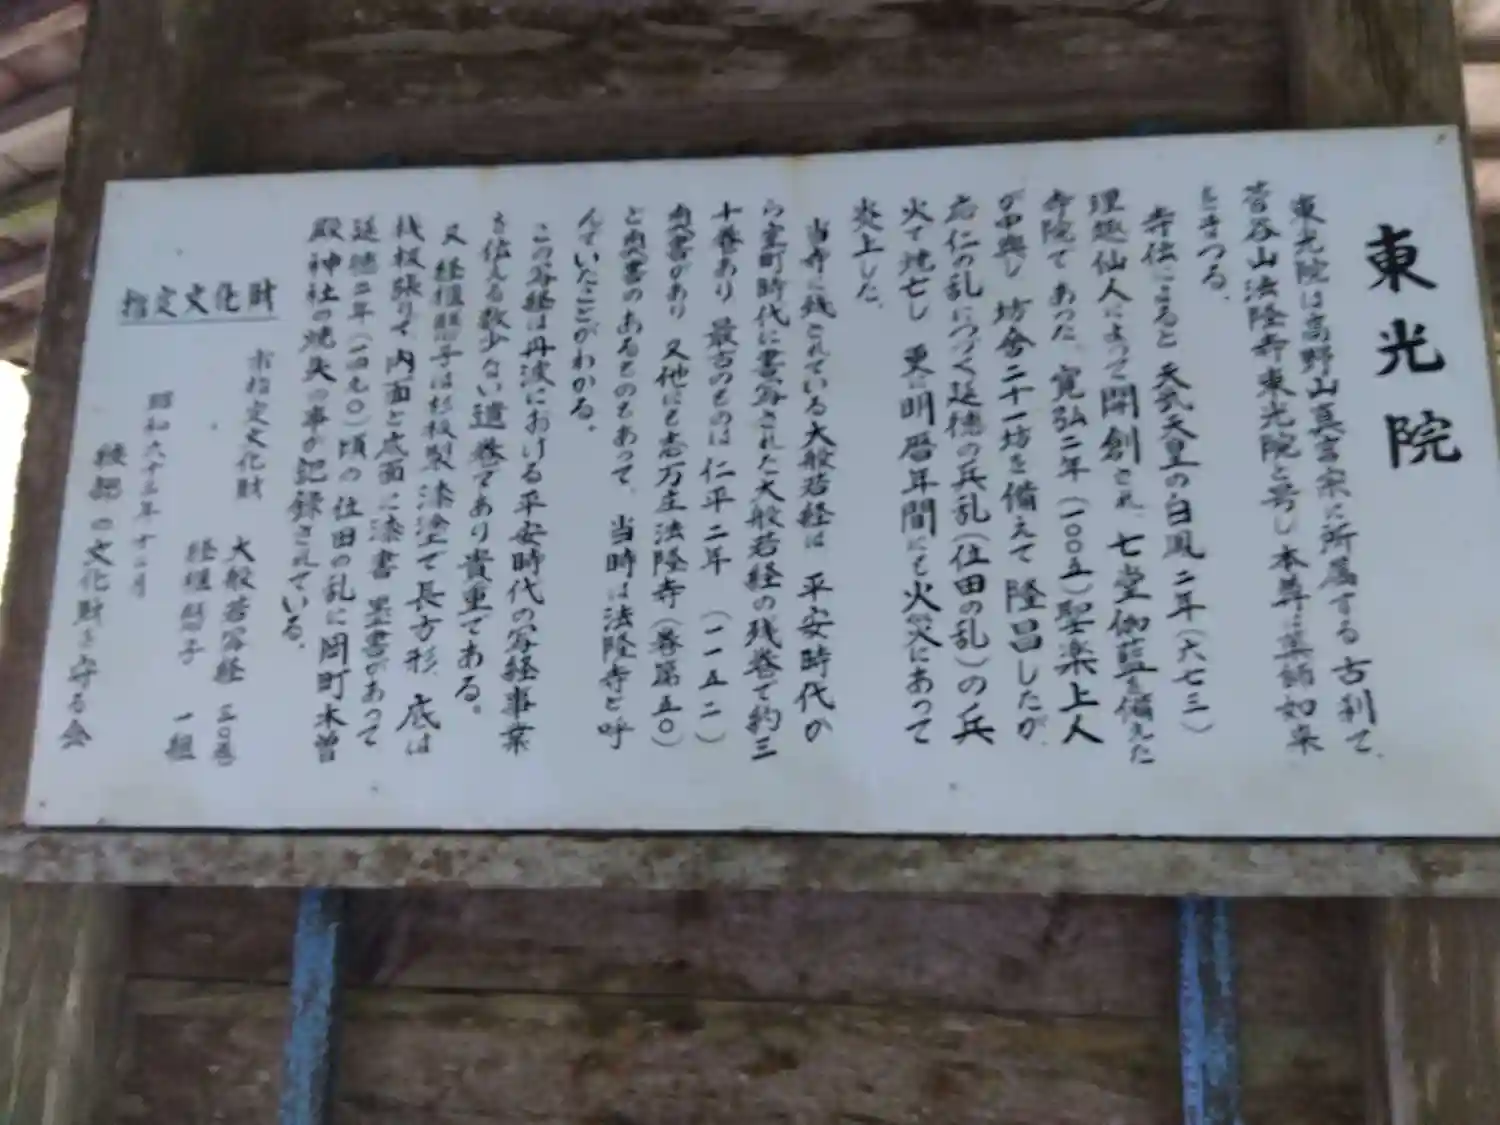 東光院
東光院は高野山真言宗に所属する古刹で、
菅谷山法隆寺東光院と号し本尊は薬師如来
をまつる。
寺伝によると 天武天皇の白鳳二年(六七三)
理趣仙人によって開創され、七堂伽藍を備えた
寺院であった。寛弘二年(一〇〇五)聖楽上人
が中興し 坊舎二十一坊を備えて 隆昌したが、
応仁の乱につづく延徳の兵乱(位田の乱)の兵
火で焼亡し 更に明暦年間にも火災にあって
炎上した。
当寺に残されている大般若経は 平安時代か
ら室町時代に書写された大般若経の残巻で約三
十巻あり 最古のものは仁平二年 (一一五二)
奥書があり 又他にも志万庄法隆寺(巻第五〇)
と奥書のあるものもあって、当時は法隆寺と呼
んでいたことがわかる。
この写経は丹波における平安時代の写経事業
を伝える数少ない遺巻であり貴重である。
又 経櫃 は杉板製 漆塗で長方形、底は
桟板張りで、内面と底面に漆書 墨書があって
延徳二年(一四九〇)頃の位田の乱に岡町木曽
殿神社の焼失の事が記録されている。
指定文化財
市指定文化財 大般若写経 三〇巻
経櫃 一組
昭和六十三年十二月
綾部の文化財を守る会